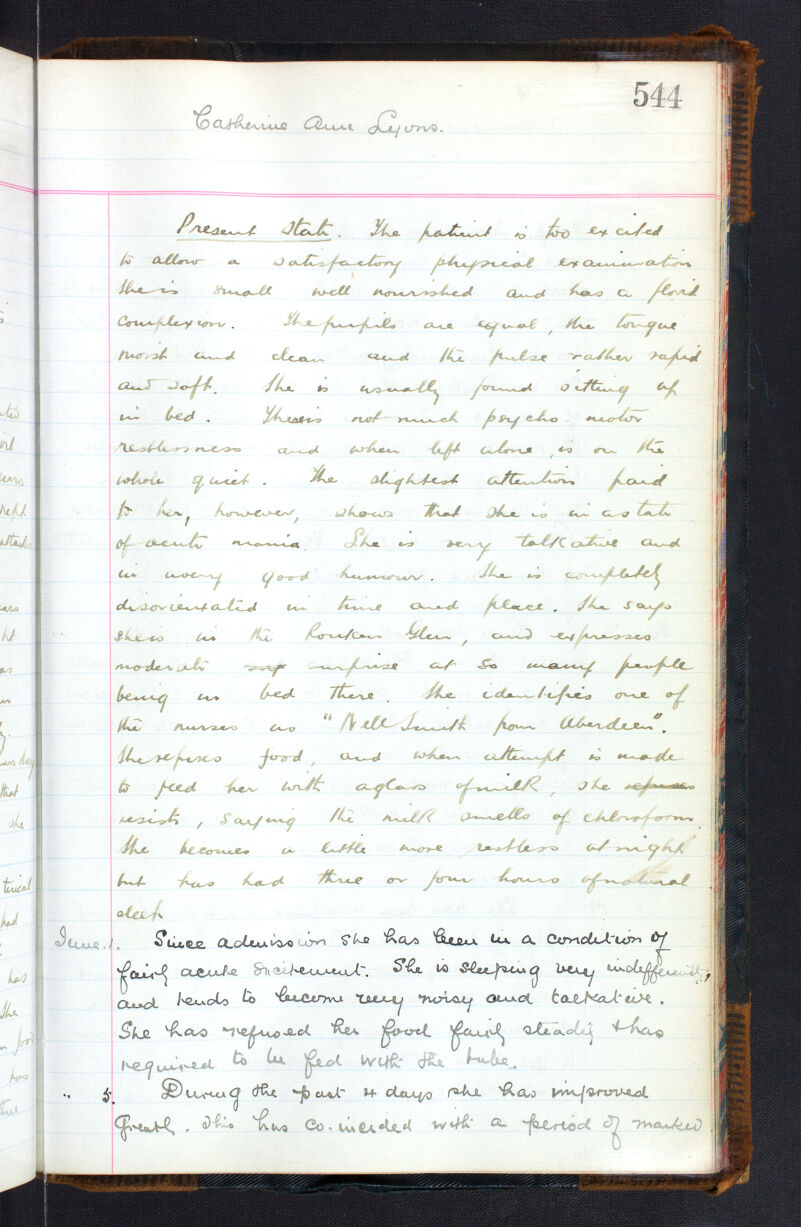 544
Catherine Ann Lyons.
Present State. The patient is too excited
to allow a satisfactory physical examination
She is small well nourished and has a florid
complexion. The pupils are equal, the tongue
moist and clean and the pulse rather rapid
and soft. She is usually found sitting up
in bed. There is not much psycho-motor
restlessness and when left alone, is on the
whole quiet. The slightest attention paid
to her, however, shows that she is in a state
of acute mania. She is very talkative and
in a very good humour. She is completely
disorientated in time and place. She says
she is in the Rouken Glen, and expresses
moderate sup surprise at so many people
being in bed there. She identifies one of
the nurses as "Nell Smith from Aberdeen".
She refuses food, and when attempt is made
to feed her with a glass of milk, she refuses
resists, saying the milk smells of chloroform.
She becomes a little more restless at night
but has had three or four hours of natural
sleep
June. 1. Since admission she has been in a condition of
fairly acute excitement. She is sleeping very indifferently,
and tends to become very noisy and talkative.
She has refused her food fairly steadily & has
required to be fed with the tube.
" 5. During the past 4 days she has improved
greatly. This has co-incided with a period of marked